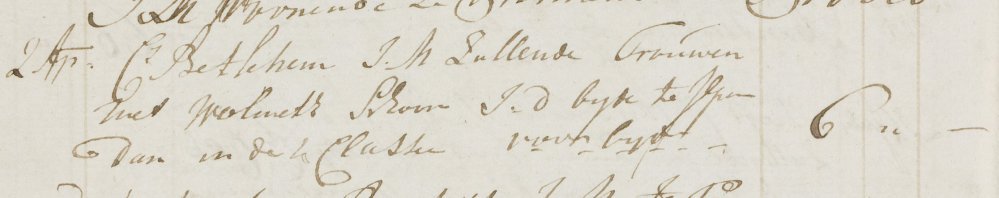 J M Woonende te
2 Ap. C Betlehem J. M Zullende Trouwen
met Wolmeth Schoon J. d byde te Span
dan in de 4 Classe voor byde 6 " —